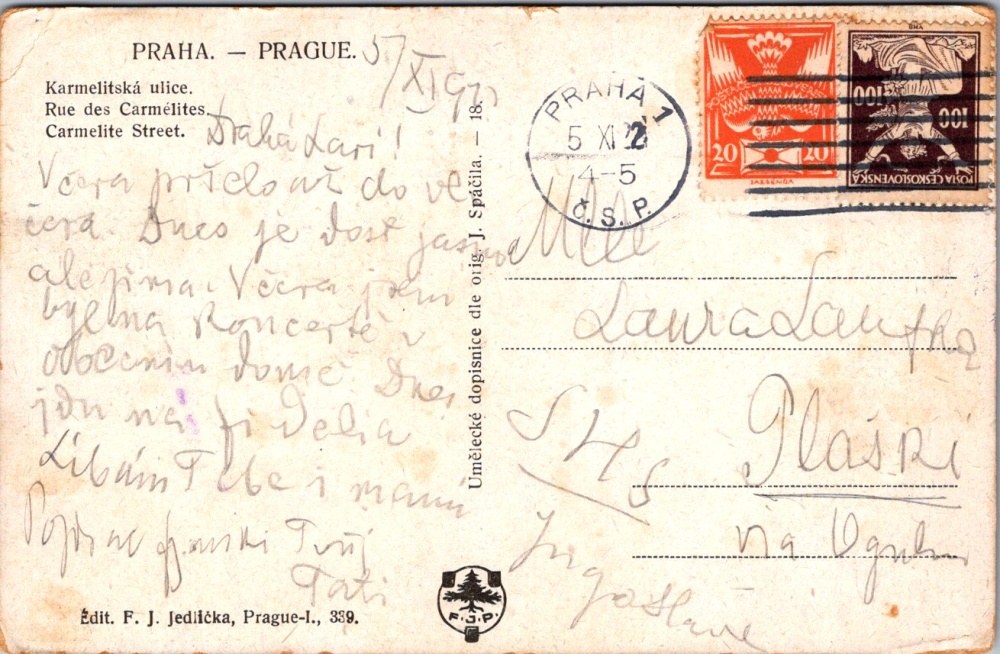 PRAHA. — PRAGUE.
5/XI
Karmelitská ulice.
Rue des Carmélites.
Carmelite Street.
Drahá Lari!
Včera pršelo až do ve
čera. Dnes je dost jasno
ale zima. Včera jsem
byl na koncertě v
obecním domě. Dnes
jdu na Fidelia
Líbám Tebe i mamu
Pozdrav Tvůj
Tati
Édit. F. J. Jedlička, Prague-I., 339.
Umělecké dopisnice dle orig. J. Spáčila. — 18.
F.J.P.
PRAHA 1
5 XI 22
4-5
Č.S.P.
POŠTA ČESKOSLOVENSKÁ
20 20
100 100
POŠTA ČESKOSLOVENSKÁ
Mlle
Laura
SHS
Plaški
via Ogulin
Jugoslavie